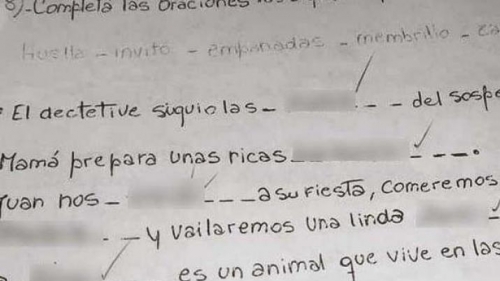 8)-Completa las oraciones
huella - invito - empanadas - membrillo -
El dectetive siguio las - - - del
Mamá prepara unas ricas - - -.
Juan nos - - - - a su fiesta, comeremos
- - y vailaremos una linda -
es un animal que vive en las